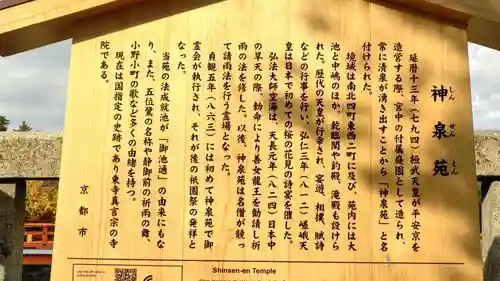 神泉苑
しんせんえん
延暦十三年(七九四)桓武天皇が平安京を
造営する際、宮中の付属庭園として造られ、
常に清泉が湧き出すことから「神泉苑」と名
付けられた。
境域は南北四町東西二町に及び、苑内には大
池と中嶋のほか、乾臨閣や釣殿、滝殿も設けら
れた。歴代の天皇が行幸され、宴遊、相撲、賦詩
などの行事を行い、弘仁三年(八一二)嵯峨天
皇は日本で初めての桜の花見の詩宴を催した。
弘法大師空海は、天長元年(八二四)日本中
の旱天の際、勅命により善女龍王を勧請し祈
雨の法を修した。以後、神泉苑は名僧が競っ
て請雨法を行う霊場となった。
貞観五年(八六三)には初めて神泉苑で御
霊会が執行され、それが後の祇園祭の発祥と
なった。
当苑の法成就池が「御池通」の由来にもな
り、また、五位鷺の名称や静御前の祈雨の舞、
小野小町の歌など多くの由緒を持つ。
現在は国指定の史跡であり東寺真言宗の寺
院である。
京都市
Shinsen-en Temple